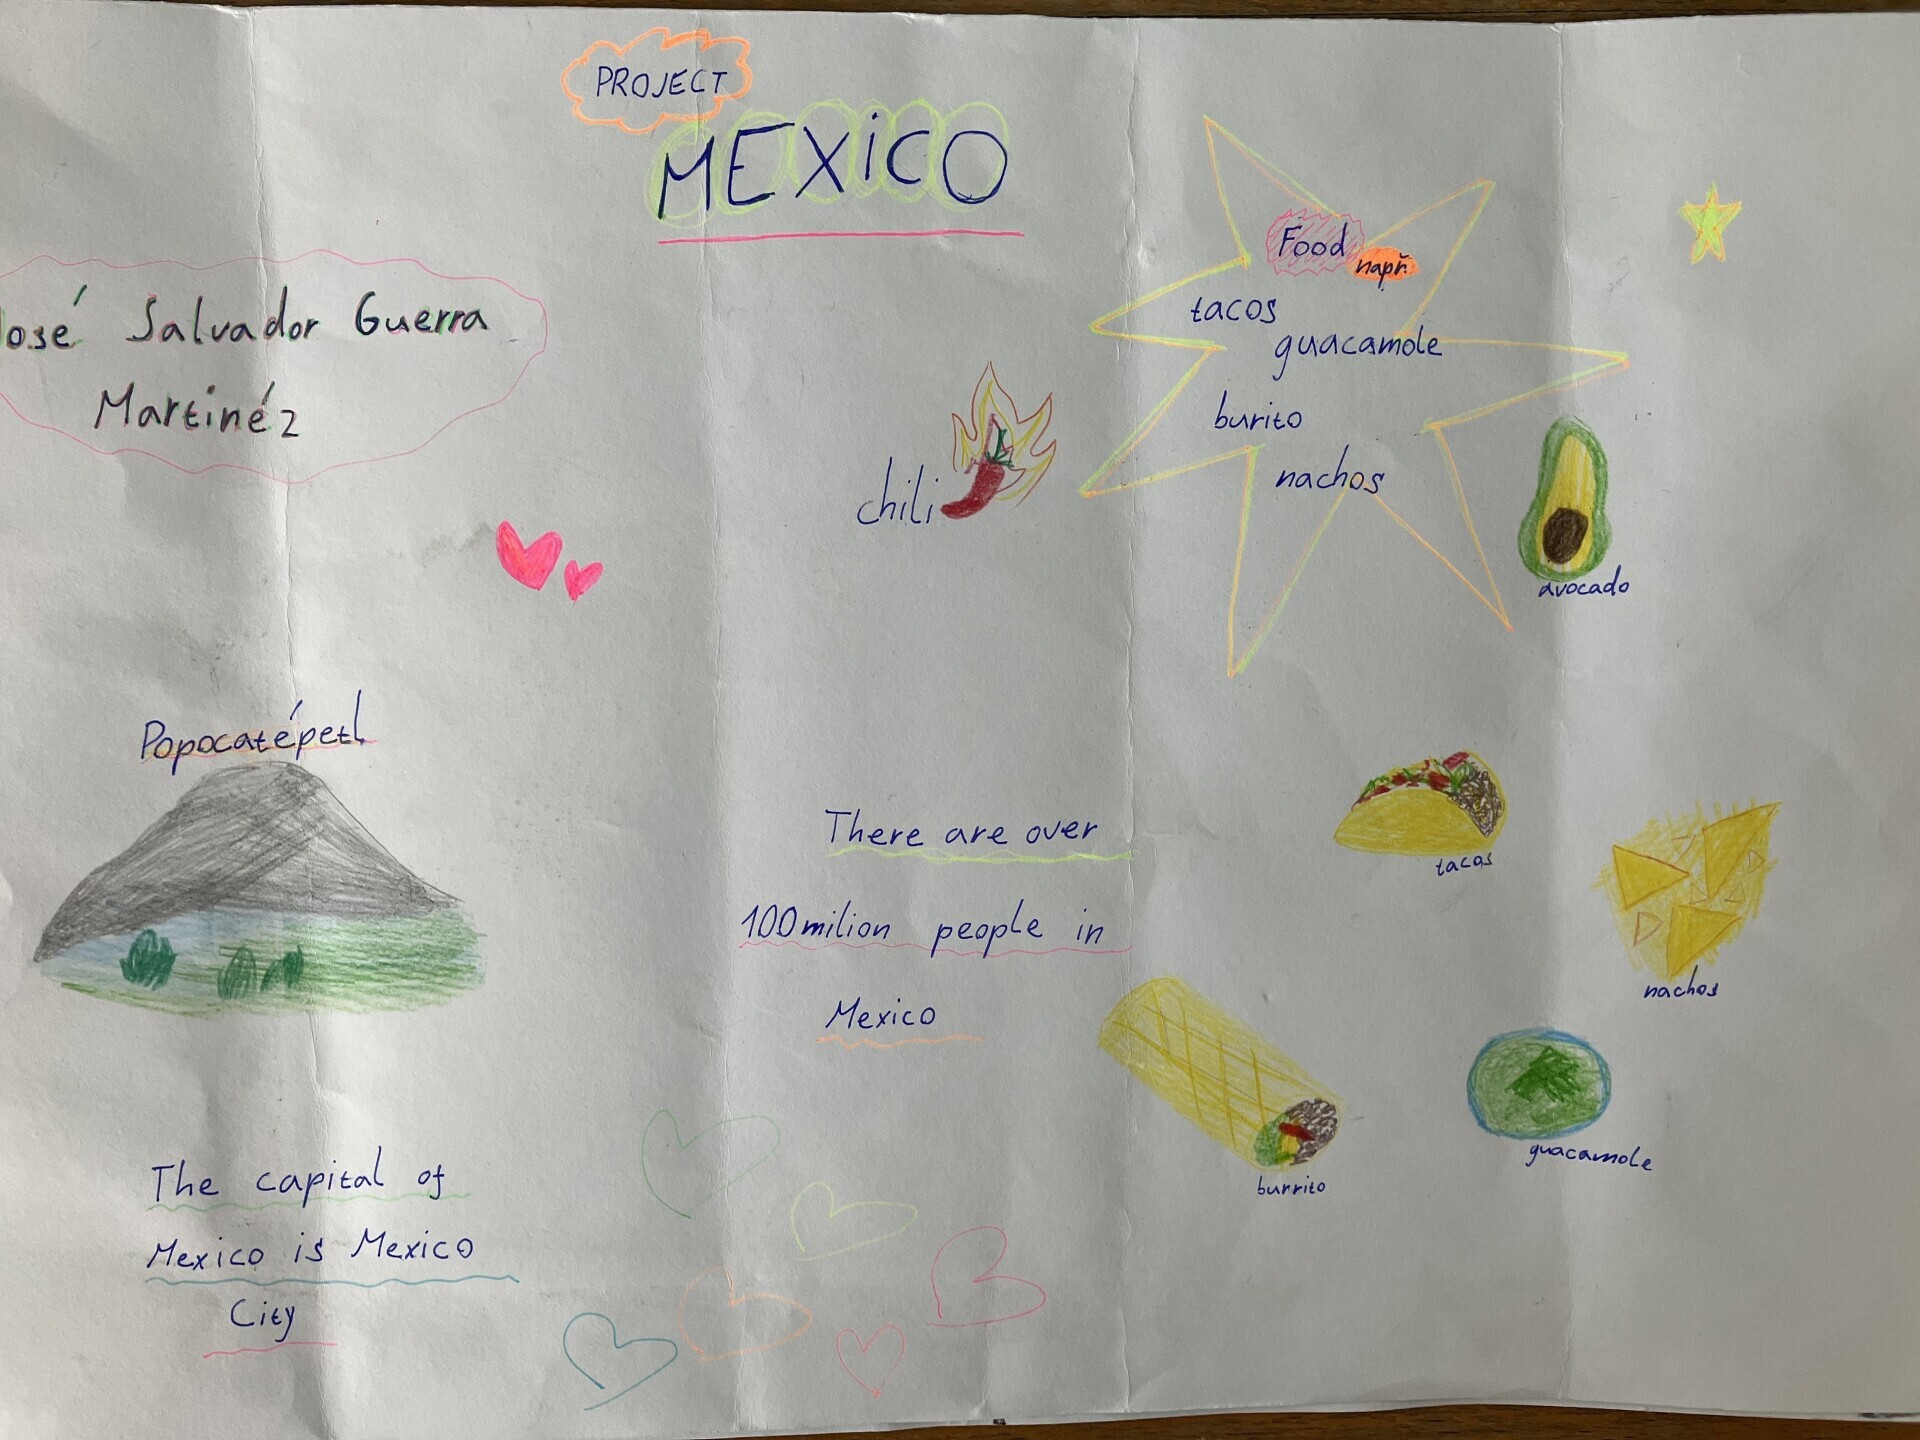 PROJECT
MEXiCO
José Salvador Guerra
Martinéz
Food
např.
tacos
guacamole
burito
nachos
chili
avocado
Popocatépetl
There are over
100milion people in
Mexico
tacos
nachos
burrito
guacamole
The capital of
Mexico is Mexico
City